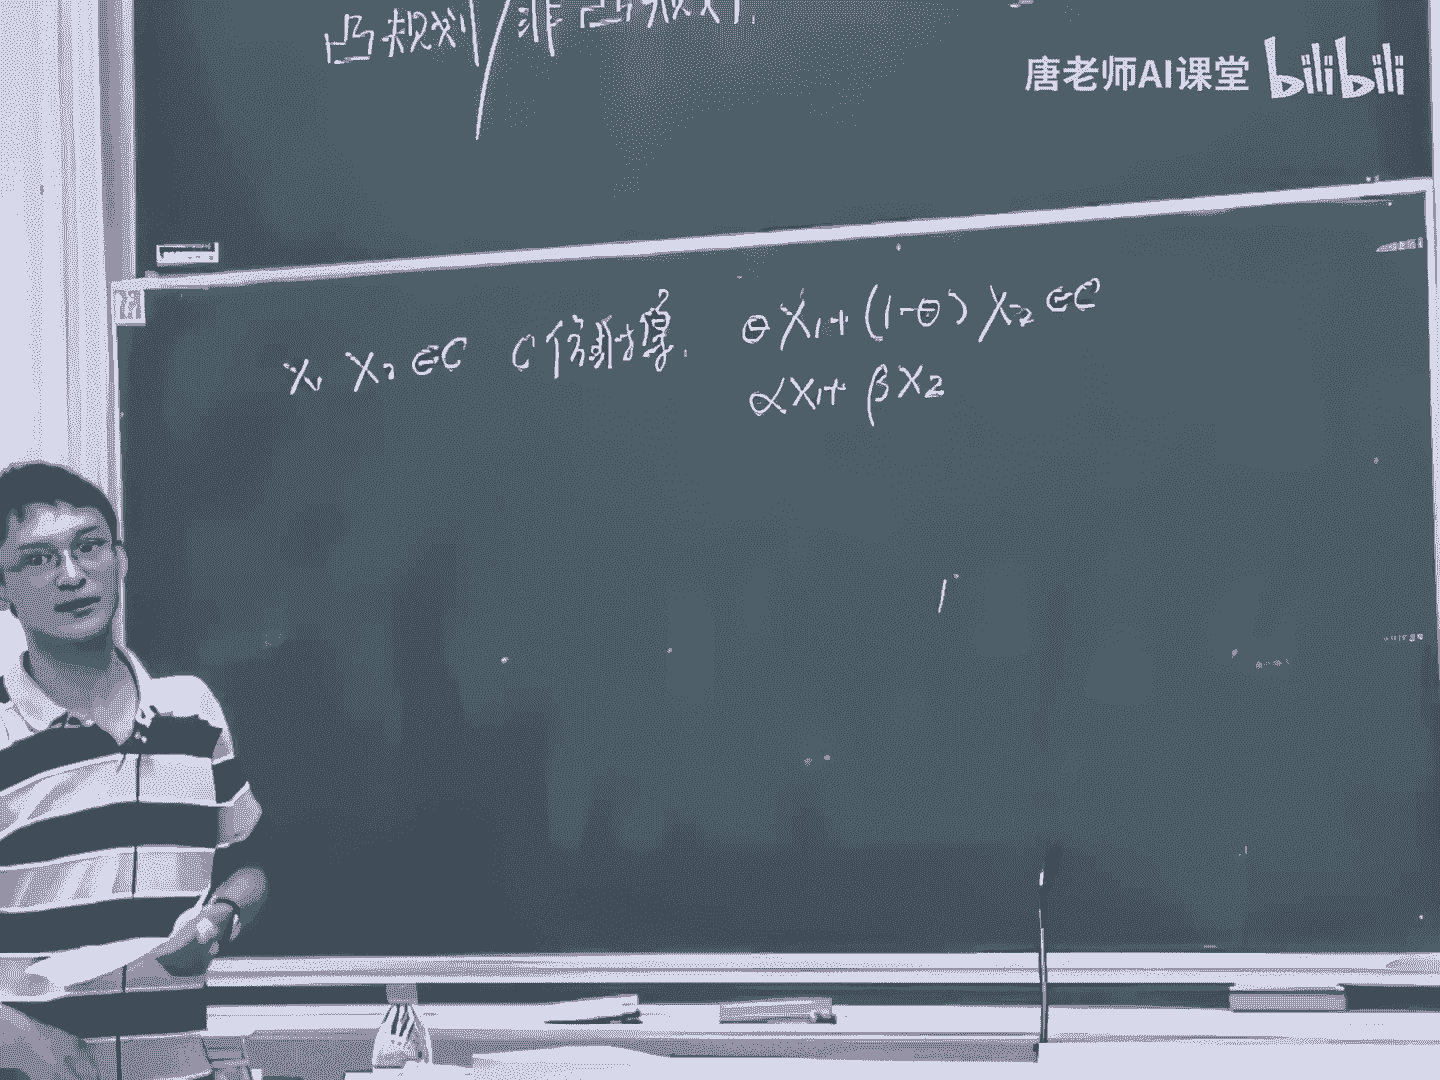 凸规划/非凸规划.
唐老师AI课堂 bilibili
x₁ x₂ ∈ C C 仿射集. θx₁+(1-θ)x₂ ∈ C
αx₁+βx₂